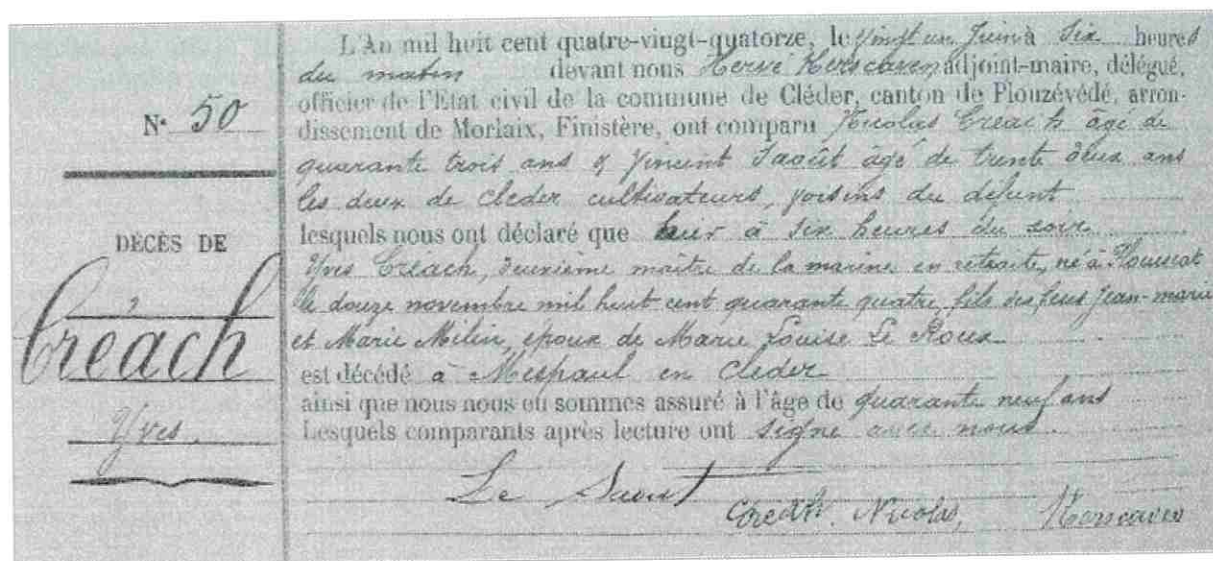 N° 50
DÉCÈS DE
Créach
Yves
L'An mil huit cent quatre-vingt-quatorze, le vingt un Juin à Six heures
du matin devant nous Hervé Kerscaven adjoint-maire, délégué,
officier de l'État civil de la commune de Cléder, canton de Plouzévédé, arron-
dissement de Morlaix, Finistère, ont comparu Nicolas Creach âgé de
quarante trois ans & Vincent Saoût âgé de trente deux ans
les deux de Cleder cultivateurs, voisins du défunt
lesquels nous ont déclaré que hier à six heures du soir
Yves Créach, deuxième maître de la marine en retraite, né à Plouescat
le douze novembre mil huit cent quarante quatre, fils des feus Jean-marie
et Marie Milin, époux de Marie Louise Le Roux
est décédé à Mespaul en Cleder
ainsi que nous nous en sommes assuré à l'âge de quarante neuf ans
Lesquels comparants après lecture ont signé avec nous.
Le Saout
Creach Nicolas, Kerscaven